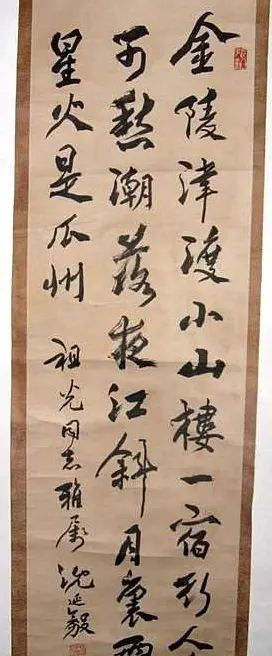 金陵津渡小山樓一宿行人
可愁潮落夜江斜月裏兩
星火是瓜州
祖光同志雅屬 沈延毅